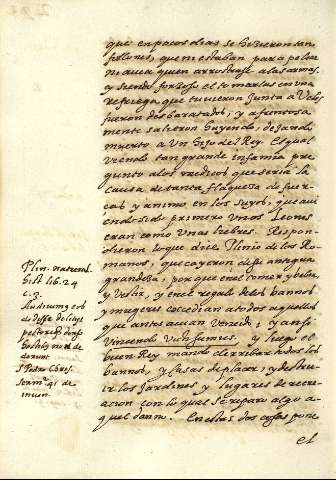 que en pocos dias se hizieron tan
follones, que ni estaban para pelear
ni auia quien arrostrase a las armas.
y siendo forzoso el tomarlas en una
refriega que tuvieron junta a Veles
fueron desbaratados, y afrentosa
mente salieron huyendo, dejando
muerto a un hijo del Rey. El qual
viendo tan grande infamia pre
gunto a los medicos que seria la
causa de tanta flaqueza de fuer
cas y animo en los suyos, que avi
endo sido primero unos Leones
eran como unas liebres. Respon
dieron lo que dice Plinio de los Ro
manos, que cayeron de su antigua
grandeza, porque en el comer, y beber
y vestir, y en el regalo de los bannos
y mugeres excedian a todos aquellos
que antes avian vencido, y ansi
vincendo victi sumus. y luego el
buen Rey mando derribar todos los
bannos, y casas de placer, y destru
ir los jardines y lugares de recre
acion con lo qual se reparo algo a
quel danno. En estas dos cosas pone
el
Plin. natural
hist. lib. 24
c. 3.
S Pedro Chris.
serm. 91 de